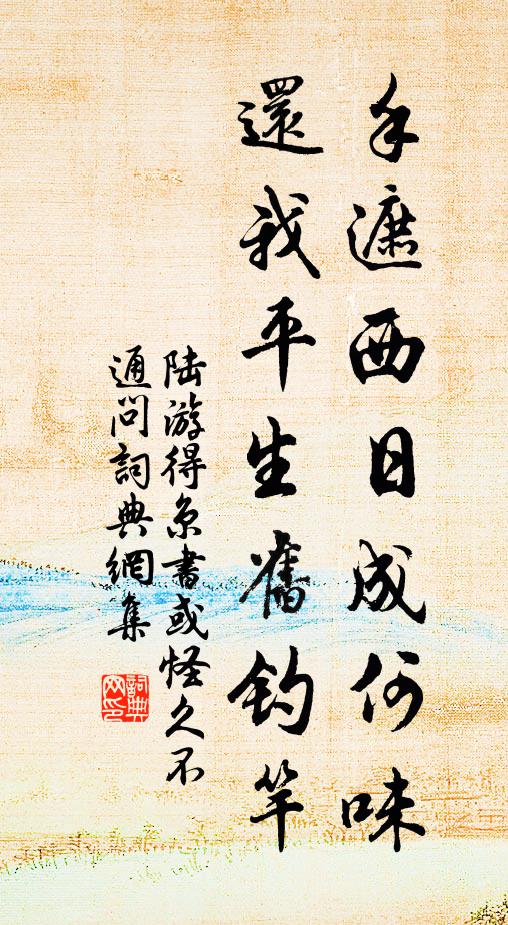 手遮西日成何味
還我平生舊釣竿
陸游得京書或怪久不
通問詞典網集
詞典網印